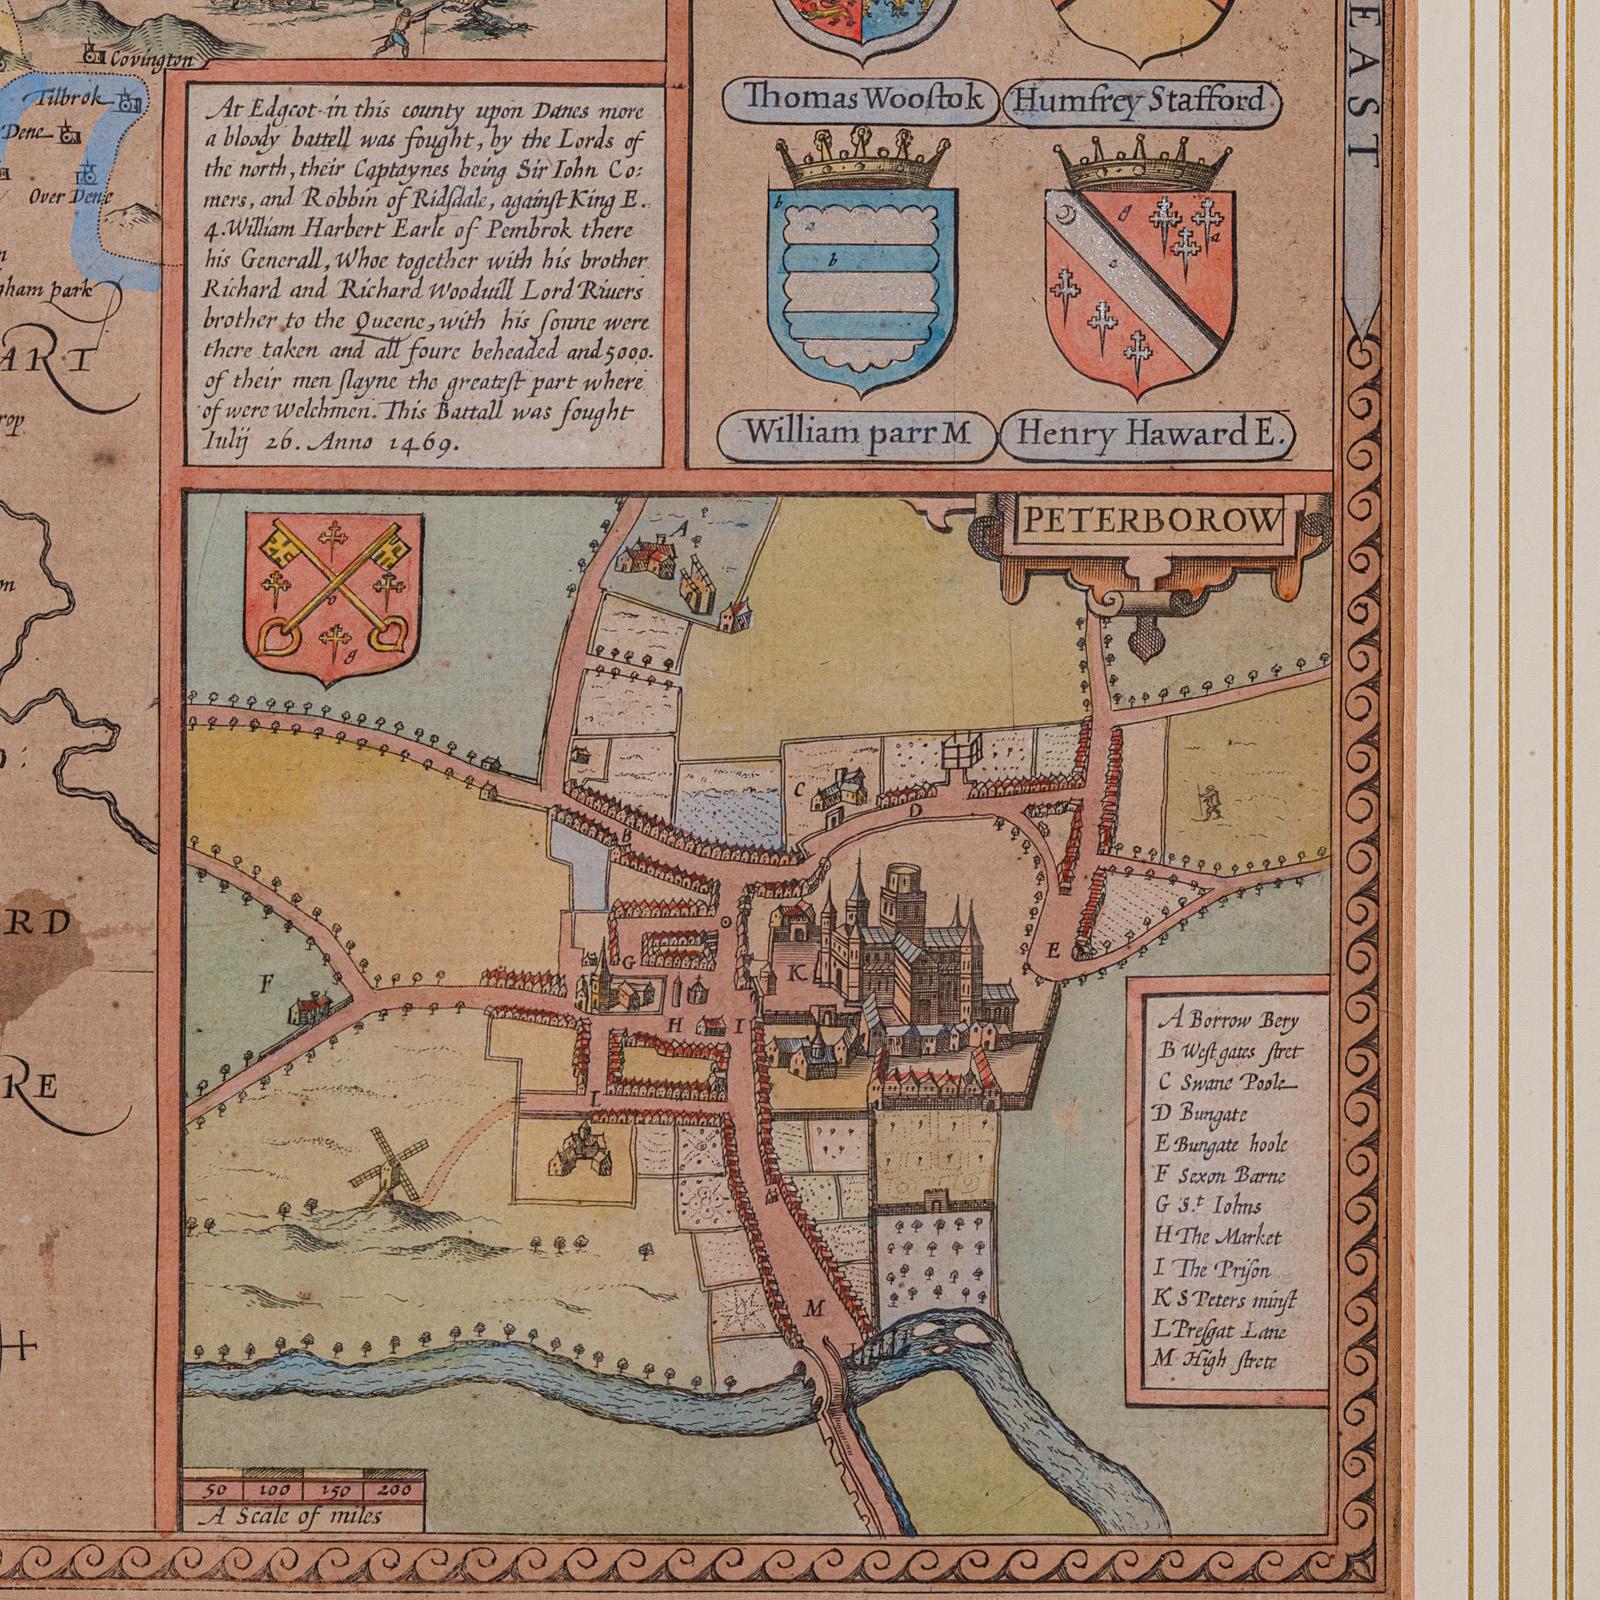 Covington
Tilbrok
Dene
Over Dene
gham park
ART
rop
on
RD
RE
At Edgcot in this county upon Danes more
a bloody battell was fought, by the Lords of
the north, their Captaynes being Sir Iohn Co:
mers, and Robbin of Ridſdale, againſt King E.
4. William Harbert Earle of Pembrok there
his Generall, Whoe together with his brother
Richard and Richard Wooduill Lord Riuers
brother to the Queene, with his ſonne were
there taken and all foure beheaded and 5000.
of their men ſlayne the greateſt part where
of were Welchmen. This Battall was fought
Iulij 26. Anno 1469.
Thomas Wooſtok
Humfrey Stafford
b
a
b
g
a
a
William parr M
Henry Haward E.
EAST
PETERBOROW
g
A
B
C
D
E
F
G
H
I
K
L
M
A Borrow Bery
B Weſtgates ſtret
C Swane Poole
D Bungate
E Bungate hoole
F Sexon Barne
G S.t Iohns
H The Market
I The Priſon
K S Peters minſt
L Preſgat Lane
M High ſtrete
50 100 150 200
A Scale of miles